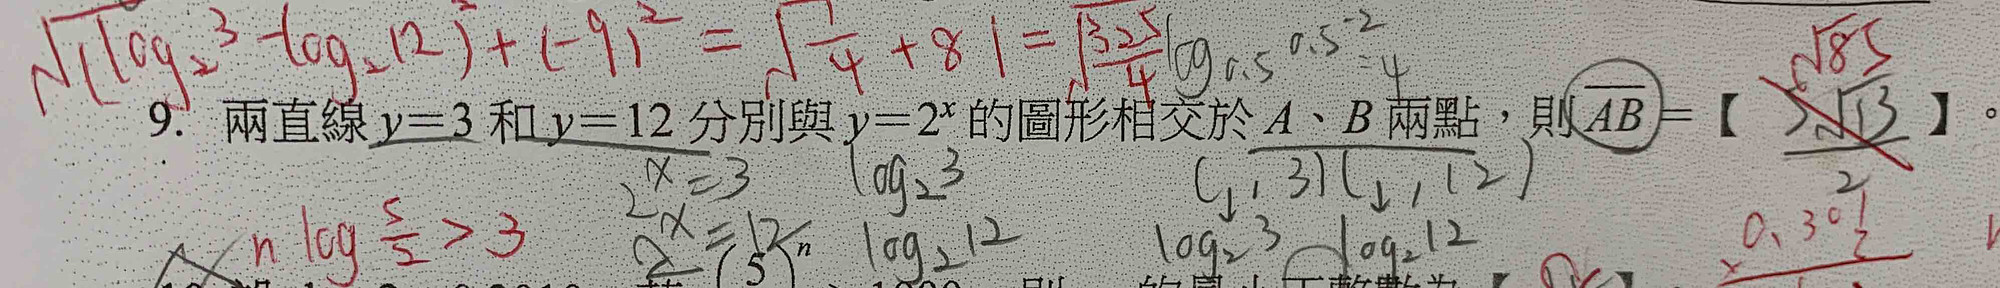 √(log₂3-log₂12)²+(-9)² = √1/4+81 = √325/4 log₀.₅ 0.5⁻²=4
√85
9. 兩直線 y=3 和 y=12 分別與 y=2ˣ 的圖形相交於 A、B 兩點，則 AB =【 5√13/2 】。
2ˣ=3 log₂3 ( , 3) ( , 12)
n log 5/2 > 3 2ˣ=12 log₂12 log₂3 log₂12 0.301